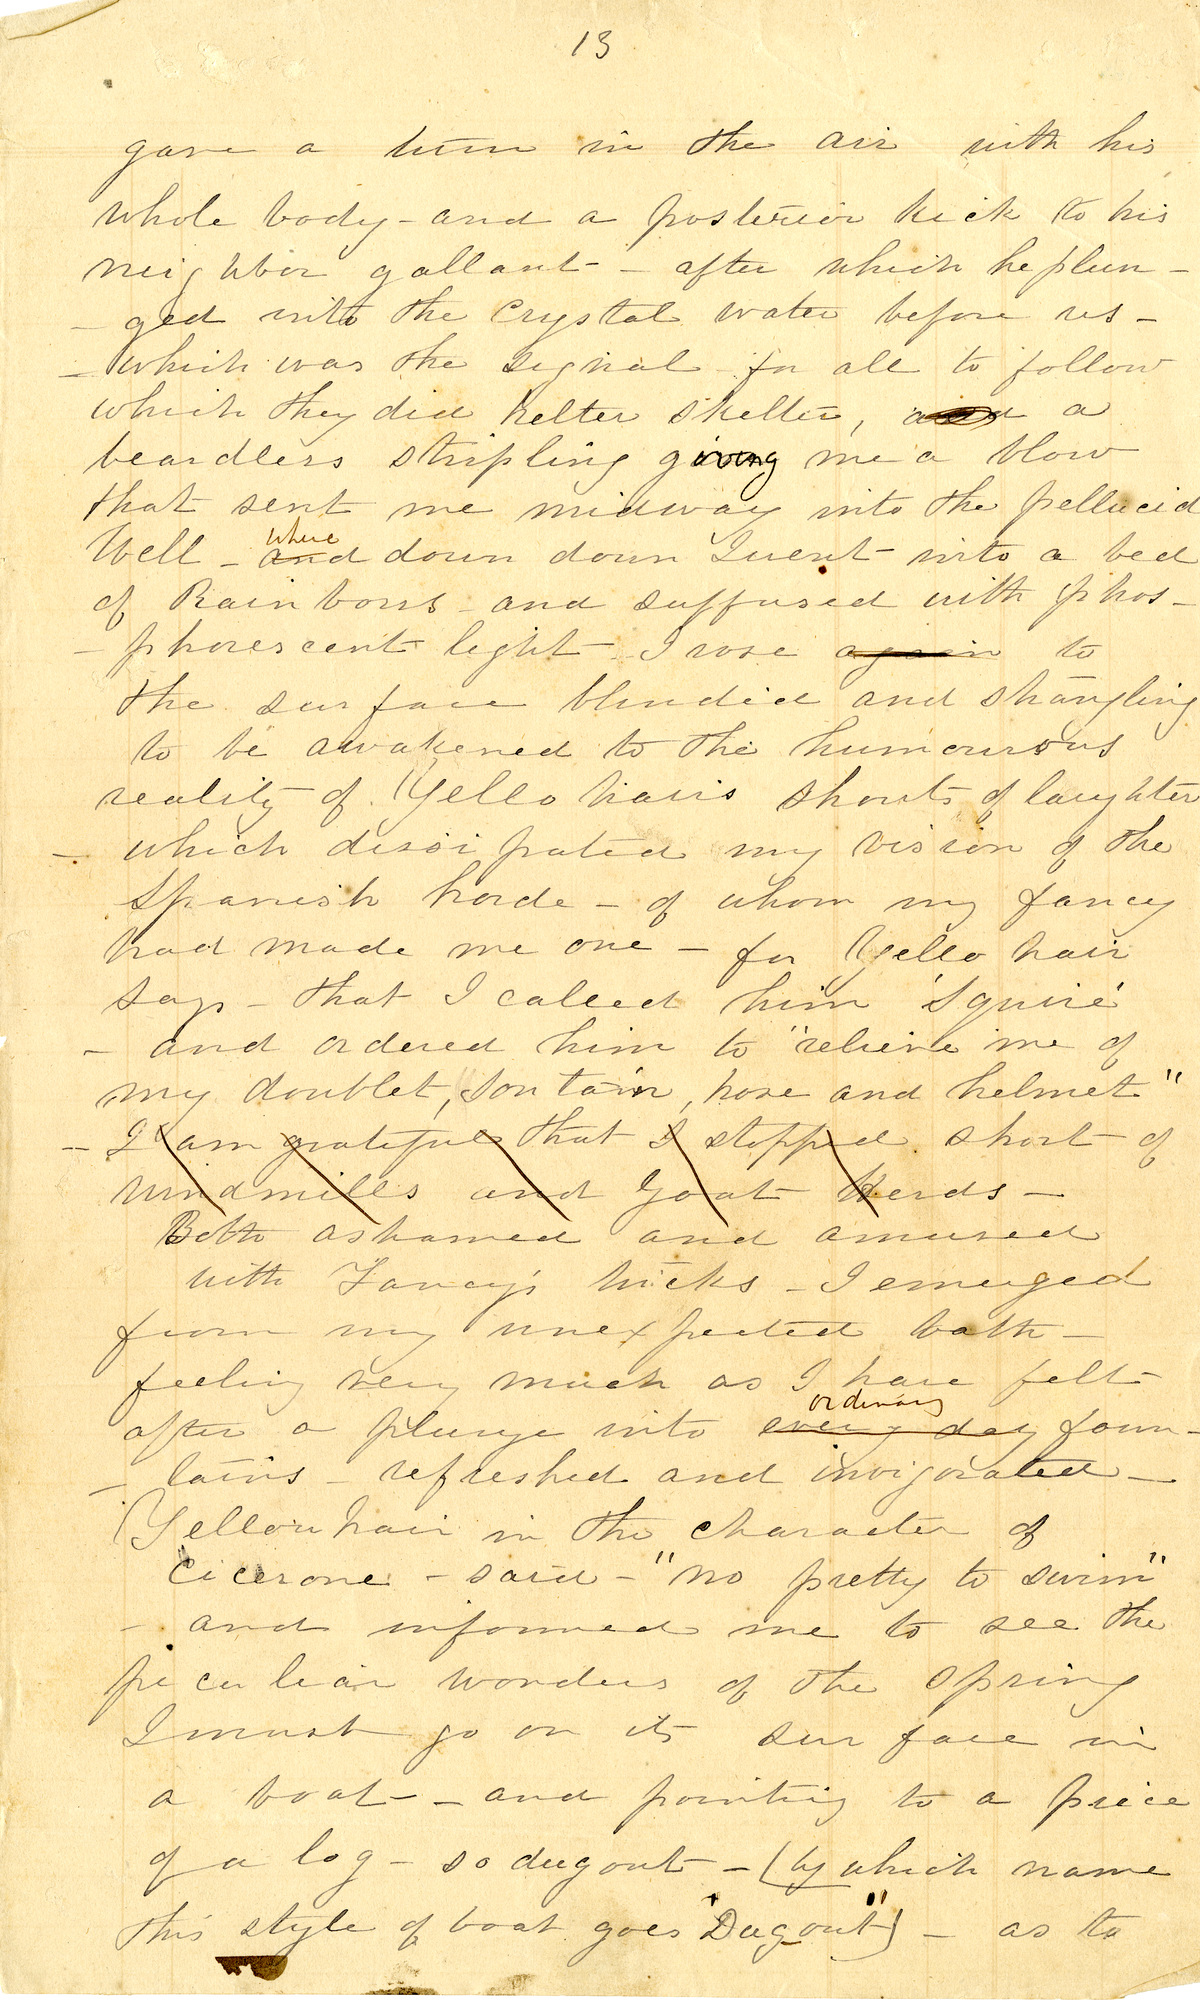 13
gave a turn in the air with his
whole body - and a posterior kick to his
neighbor gallant - after which he plun-
- ged into the Crystal water before us -
- which was the signal for all to follow
which they did helter skelter, and a
beardless stripling giving me a blow
that sent me midway into the pellucid
Well - and where down down I went - into a bed
of Rainbows - and suffused with phos-
- phorescent light - I rose again to
the surface blinded and strangling
to be awakened to the humourous
reality of Yello hairs shouts of laughter
- which dissipated my vision of the
Spanish horde - of whom my fancy
had made me one - for Yello hair
says - that I called him 'Squire'
- and ordered him to "relieve me of
my doublet, hose and helmet"
- I am grateful that I stopped short of
windmills and Goat Herds -
Both ashamed and amused
with Fancy's tricks - I emerged
from my unexpected bath -
feeling very much as I have felt
after a plunge into every day ordinary foun-
- tains - refreshed and invigorated -
Yellow hair in the character of
Cicerone - said - "no pretty to swim"
- and informed me to see the
peculiar wonders of the Spring
I must go on its surface in
a boat - and pointing to a piece
of a log - so dugout - (by which name
this style of boat goes "Dugout") - as to